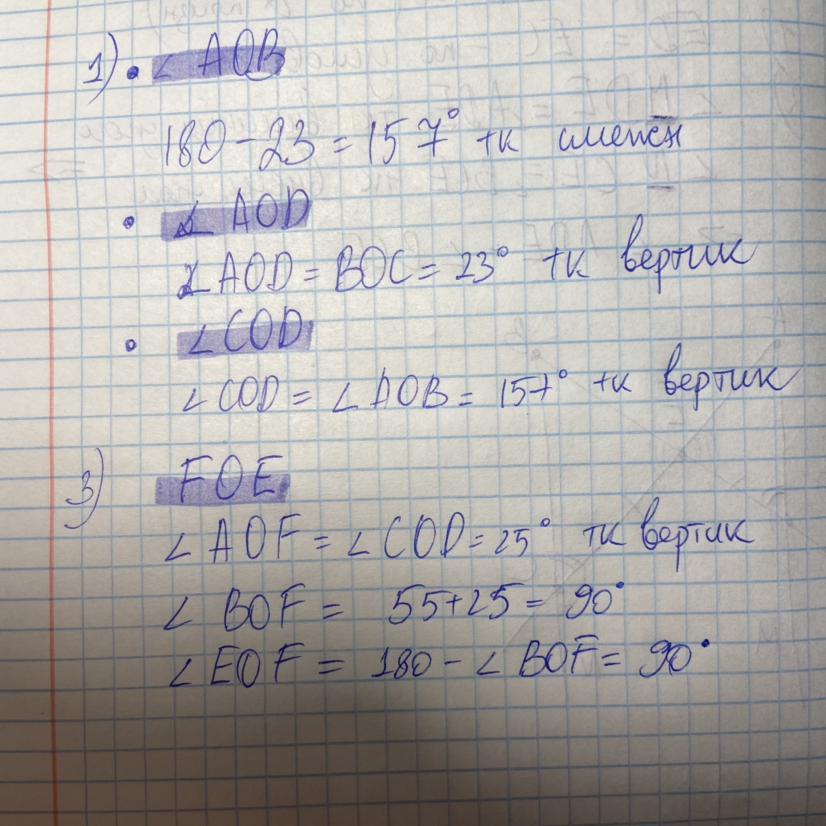 1) • ∠ AOB
180 - 23 = 157° тк смежн
• ∠ AOD
∠AOD = BOC = 23° тк вертик
• ∠COD
∠COD = ∠AOB = 157° тк вертик
3) FOE
∠AOF = ∠COD = 25° тк вертик
∠BOF = 55+25 = 90°
∠EOF = 180 - ∠BOF = 90°